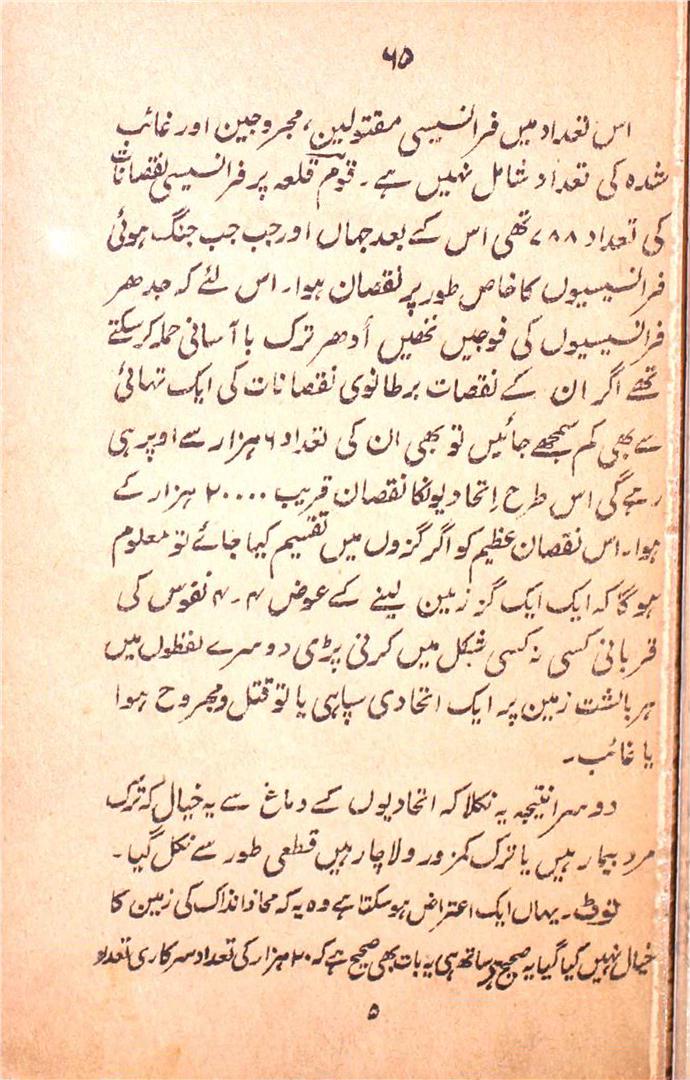 ۶۵
اس تعداد میں فرانسیسی مقتولین، مجروحین اور غائب
شدہ کی تعداد شامل نہیں ہے۔ قوم قلعہ پر فرانسیسی نقصانات
کی تعداد ۷۸۸ تھی اس کے بعد جہاں اور جب جب جنگ ہوئی
فرانسیسیوں کا خاص طور پر نقصان ہوا۔ اس لئے کہ جدھر
فرانسیسیوں کی فوجیں تھیں اُدھر ترک با آسانی حملہ کر سکتے
تھے اگر ان کے نقصات برطانوی نقصانات کی ایک تہائی
سے بھی کم سمجھے جائیں تو بھی ان کی تعداد ۶ ہزار سے اوپر ہی
رہے گی اس طرح اِتحادیونکا نقصان قریب ۲۰۰۰۰ ہزار کے
ہوا۔ اس نقصان عظیم کو اگر گزوں میں تقسیم کیا جائے تو معلوم
ہوگا کہ ایک ایک گز زمین لینے کے عوض ۴-۴ نفوس کی
قربانی کسی نہ کسی شکل میں کرنی پڑی دوسرے لفظوں میں
ہر بالشت زمین پر ایک اتحادی سپاہی یا تو قتل و مجروح ہوا
یا غائب۔
دوسرا نتیجہ یہ نکلا کہ اتحادیوں کے دماغ سے یہ خیال کہ ترک
مرد بیمار ہیں یا ترک کمزور و لاچار ہیں قطعی طور سے نکل گیا۔
نوٹ۔ یہاں ایک اعتراض ہو سکتا ہے وہ یہ کہ محاذ انذاک کی زمین کا
خیال نہیں کیا گیا یہ صحیح ہے ساتھ ہی یہ بات بھی صحیح ہے کہ ۲۰ ہزار کی تعداد سرکاری تعداد
۵